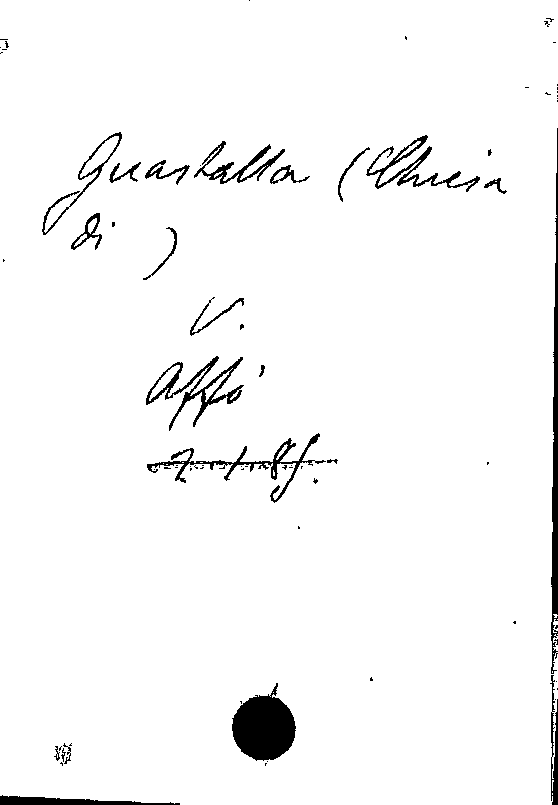 Guastalla (Chiesa
di )
V.
Affò